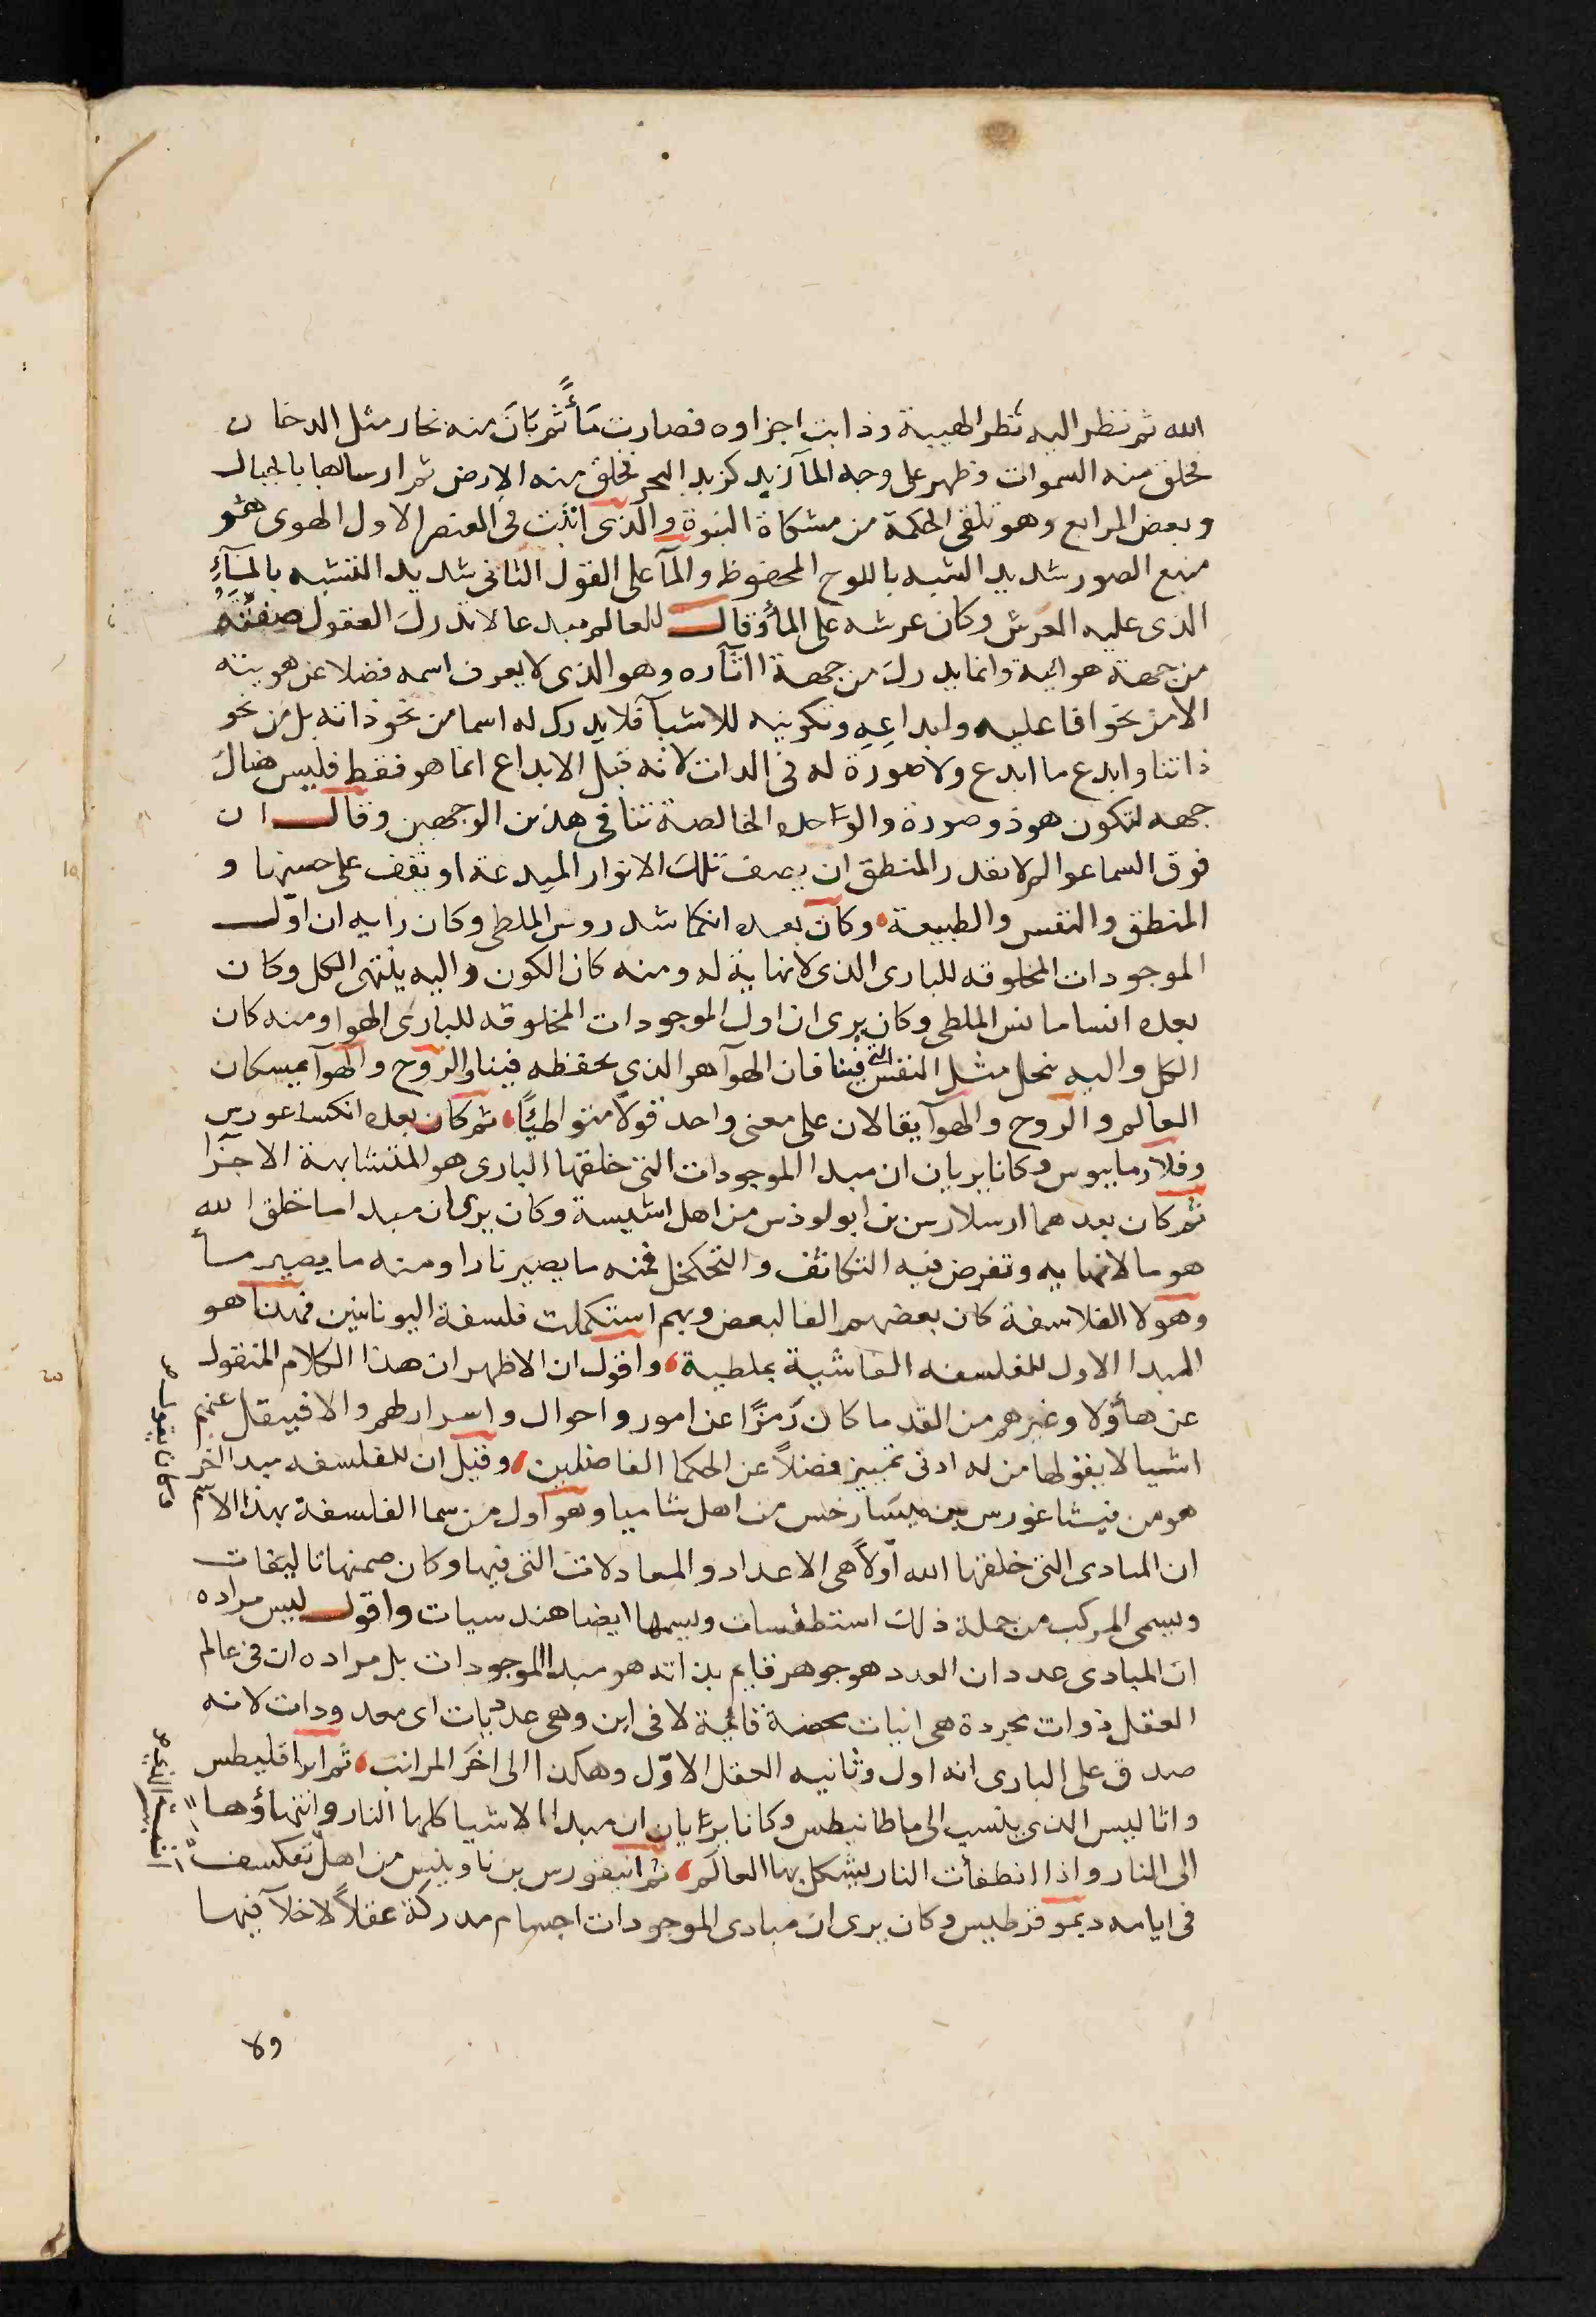 الله ثم نظر اليه نظر الهيبة وذابت اجزاوه فصارت مأً ثم بَانَ منه بخار مثل الدخان
فخلق منه السموات وظهر على وجه المآ زبد كزبد البحر فخلق منه الارض ثم ارسالها بالجبال
وبعض المرابع وهو تلقى الحكمة من مشكاة النبوة والذى اثبت فى العنصر الاول الهوى هو
منبع الصور شديد الشبه باللوح المحفوظ والمآ على القول الثانى شديد التشبه بالمآء
الذى عليه العرش وكان عرشه على المأ وقال للعالم مبدعا لا تدرك العقول صفته
من جهة هوائية وانما يدرك من جهة اثآره وهو الذى لا يعرف اسمه فضلا عن هويته
الا من نحو افاعليه وابداعِهِ وتكوينه للاشيآ فلا يدرك له اسما من نحو ذاته بل من نحو
ذاتنا وابدع ما ابدع ولا صورة له فى الدات لانه قبل الابداع انما هو فقط فليس هناك
جهه لتكون هو ذو صورة والوحده الخالصة تنافى هذين الوجهين وقال ان
فوق السما عوالم لا تقدر المنطق ان يصف تلك الانوار المبدعة او تقف على حسنها و
المنطق والنفس والطبيعة وكان بعده انكماشدروس الملطى وكان رايه ان اول
الموجودات المخلوقه للبارى الذى لا نهاية له ومنه كان الكون واليه ينتهى الكل وكان
بعده انساماىس الملطى وكان يرى ان اول الموجودات المخلوقه للبارى الهوا ومنه كان
الكل واليه ينحل مثل النفس التى فينا فان الهوآ هو الذى يحفظه فينا والروح والهوآ يمسكان
العالم والروح والهوآ يقالان على معنى واحد قولا متواطيًا ثم كان بعده انكساعورس
وفلارماىوس وكانا يريان ان مبدا الموجودات التى خلقها البارى هو المتشابهة الاجزآ
ثم كان بعدهما ارسلارس بن ابولوذس من اهل اشيسة وكان يرى ان مبدا ما خلق الله
هو ما لا نهايه وتفرض فيه التكاثف والتخلخل فمنه ما يصير نارا ومنه ما يصير مأ
وهولا الفلاسفة كان بعضهم الفا لبعض وبهم استكملت فلسفة اليونانيين فهذا هو
المبدا الاول للفلسفه الفاشية بملطية واقول ان الاظهر ان هذا الكلام المنقول
عن هأولا وغيرهم من القدما كان رَمزًا عن امور واحوال واسرار لهم والا فينقل عنهم
اشيا لا يفولها من له ادنى تمييز فضلاً عن الحكما الفاضلين وقيل ان للفلسفه مبدا اخر
هو من فيثاغورس بن ميسارخس من اهل شاميا وهو اول من سما الفلسفة بهذا الاسم
ان المبادى التى خلقها الله اولاً هى الاعداد والمعادلات التى فيها وكان صمنها تاليفات
ويسمى المركب من جملة ذلك استطقسات ويسمها ايضا هندسيات واقول ليس مراده
ان المبادى عدد ان العدد هو جوهر قايم بذاته هو مبدا الموجودات بل مراده ان فى عالم
العقل ذوات مجردة هى انيات محضة قائمة لا فى اين وهى عدديات اى معدودات لانه
صدق على البارى انه اول وثانيه العقل الاول وهكذا الى اخر المراتب ثم ابراقليطس
واثاليس الذى ينتسب الى ماطانيطس وكانا يريان ان مبدا الاشيا كلها النار وانتهاؤها
الى النار واذا انطفأت النار يشكل بها العالم ثم انيقورس بن ناوينس من اهل تعكسف
فى ايامه ديموقرطيس وكان يرى ان مبادى الموجودات اجسام مدركة عقلاً لا خلآ فيها
ولا
وكان يقول